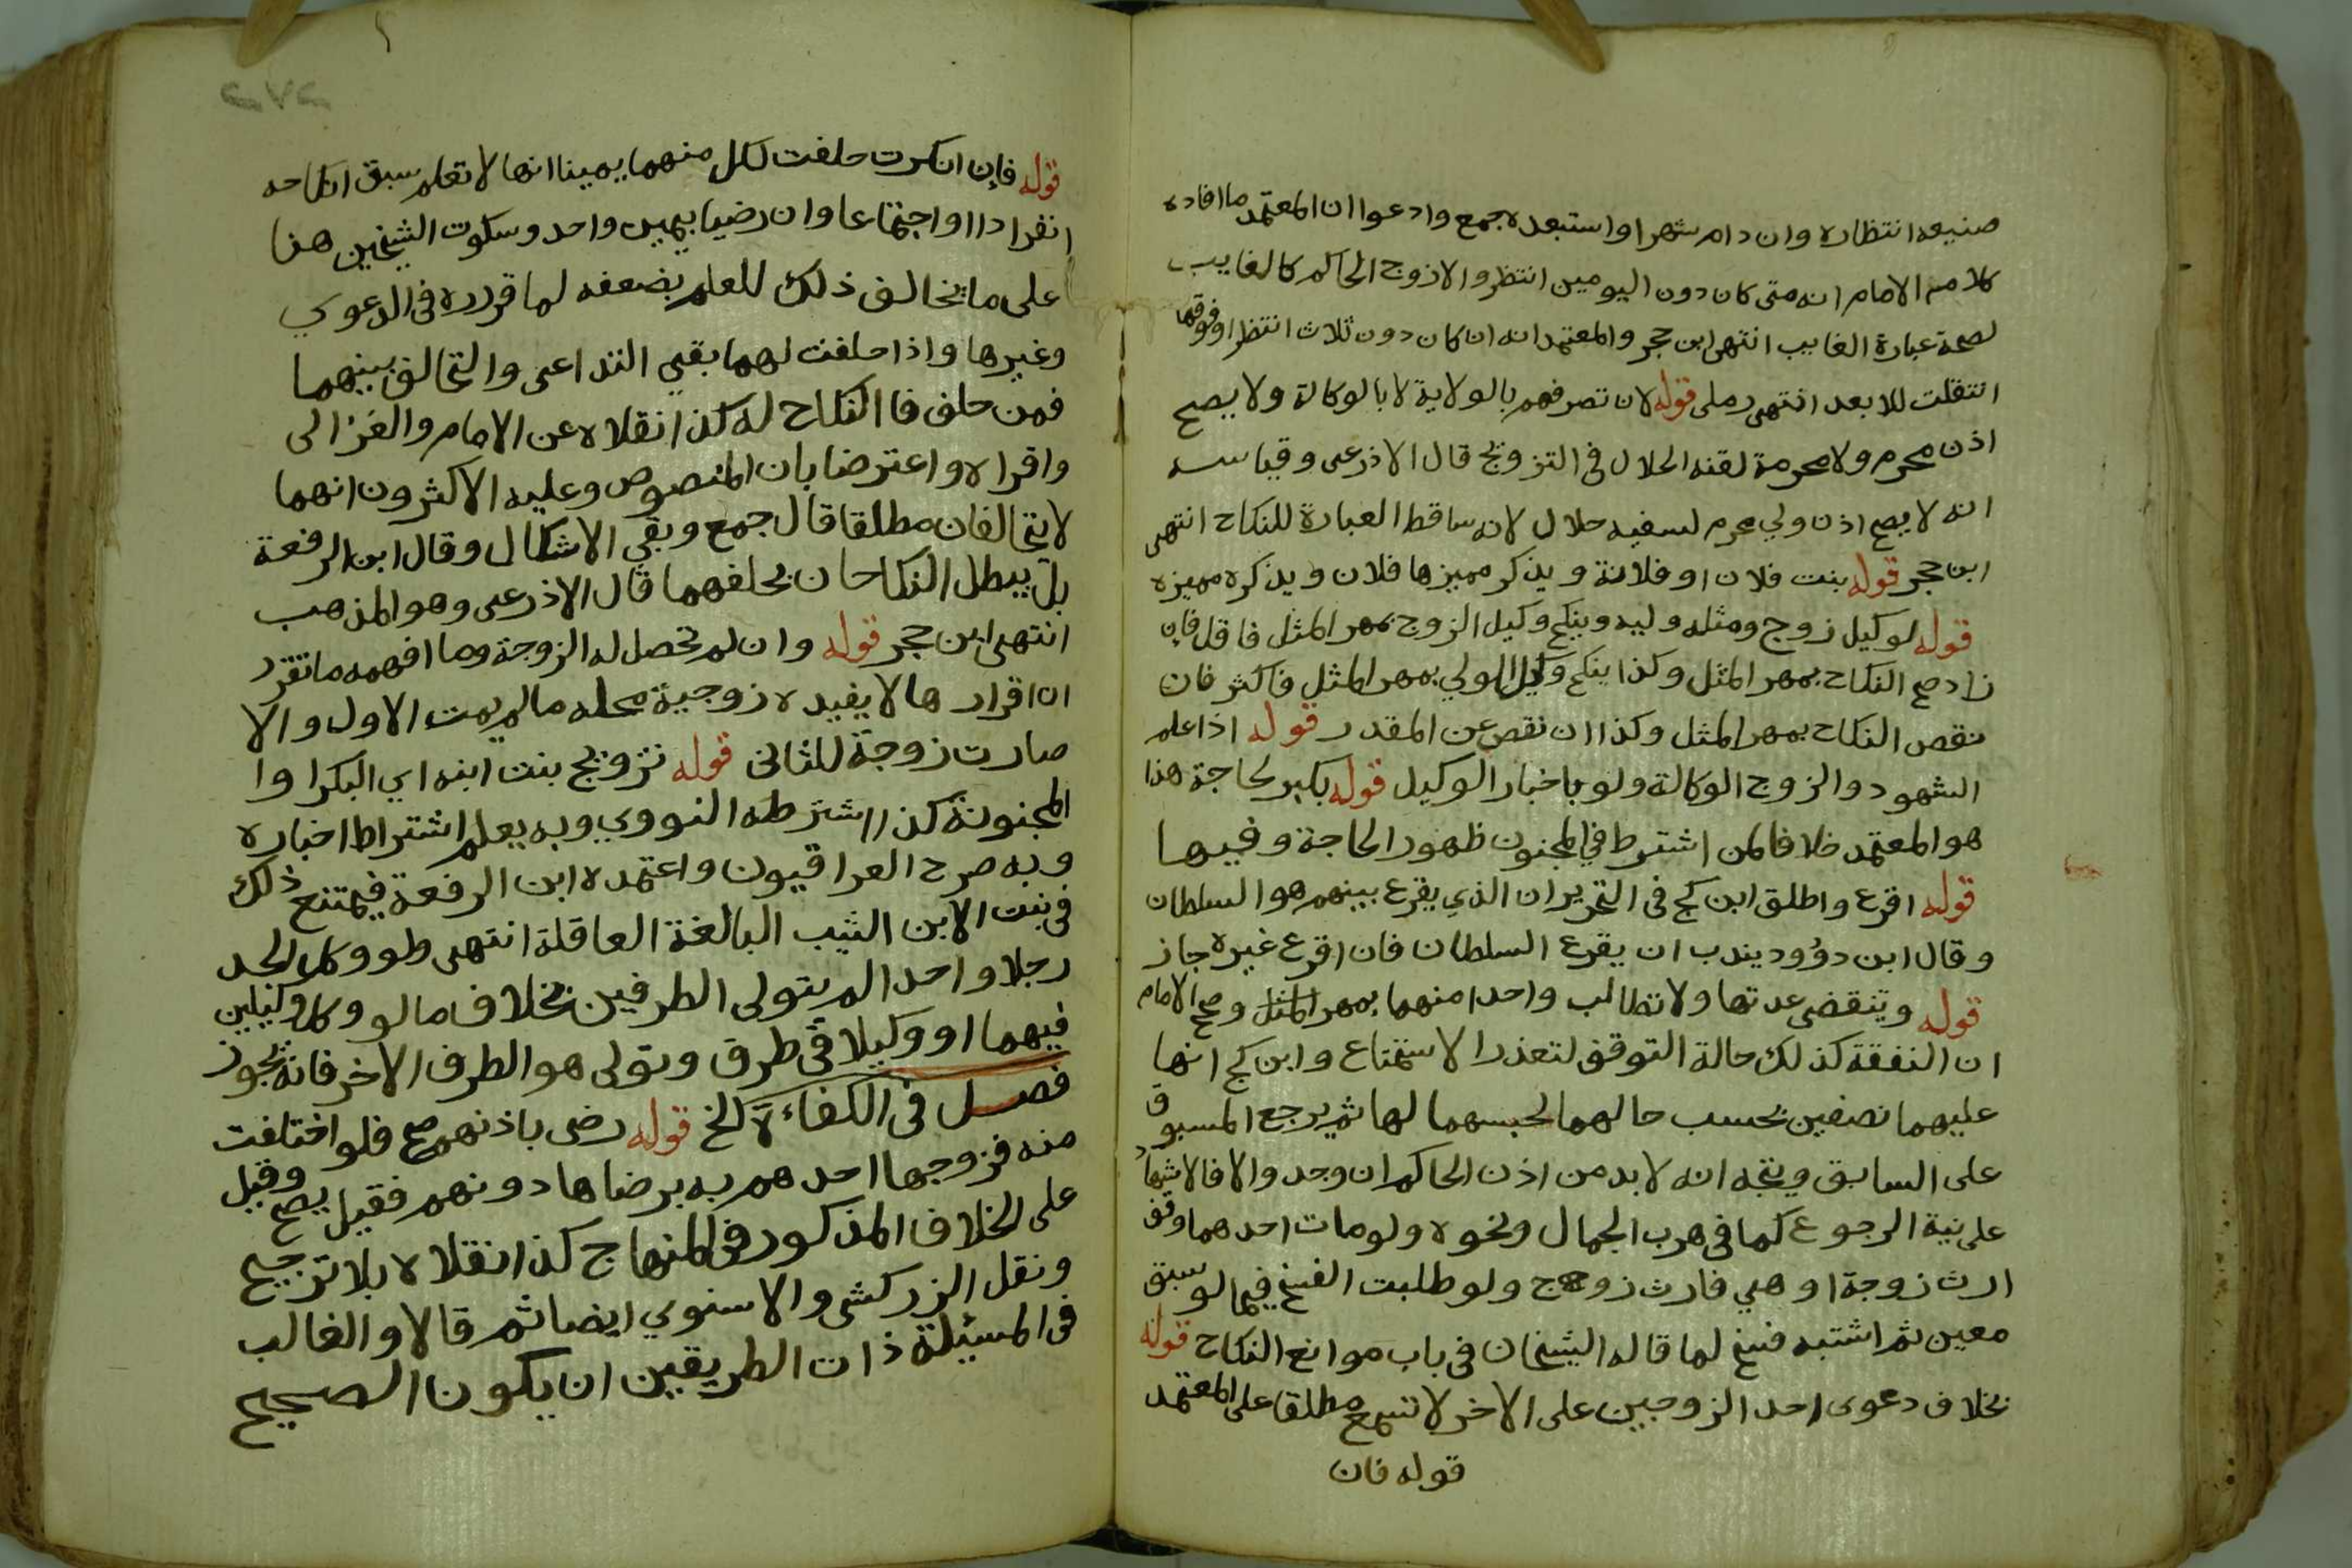 صنيعه انتظاره وان دام شهرا واستبعده جمع وادعوا ان المعتمد ما افاده
كلام الامام انه متى كان دون اليومين انتظر والا زوج الحاكم كالغايب
لصحة عبارة الغايب انتهى ابن حجر والمعتمد انه ان كان دون ثلاث انتظر او فوقها
انتقلت للابعد انتهى رملى قوله لان تصرفهم بالولاية لا بالوكالة ولا يصح
اذن محرم ولا محرمة لقنه الحلال فى التزويج قال الاذرعى وقياسه
انه لا يصح اذن ولي محرم لسفيه حلال لانه ساقط العبارة للنكاح انتهى
ابن حجر قوله بنت فلان او فلانة ويذكر مميزها فلان ويذكره مميزه
قوله لوكيل زوج ومثله وليه وينكح وكيل الزوج بمهر المثل فاقل فان
زاد صح النكاح بمهر المثل وكذا ينكح وكيل الولي بمهر المثل فاكثر فان
نقص النكاح بمهر المثل وكذا ان نقص عن المقدر قوله اذا علم
الشهود والزوج الوكالة ولو باخبار الوكيل قوله بكبر لحاجة هذا
هو المعتمد خلافا لمن اشترط في المجنون ظهور الحاجة وفيها
قوله اقرع واطلق ابن كج فى التحرير ان الذي يقرع بينهم هو السلطان
وقال ابن دوود يندب ان يقرع السلطان فان اقرع غيره جاز
قوله وتنقضى عدتها ولا تطالب واحدا منهما بمهر المثل وصحح الامام
ان النفقة كذلك حالة التوقف لتعذر الاستمتاع وابن كج انها
عليهما نصفين بحسب حالهما لحبسهما لها ثم يرجع المسبوق
على السابق ويتجه انه لا بد من اذن الحاكم ان وجد والا فالاشهاد
على نية الرجوع كما فى هرب الجمال ونحوه ولو مات احدهما وقف
ارث زوجة او هي فارث زوج ولو طلبت الفسخ فيما لو سبق
معين ثم اشتبه فسخ لما قاله الشيخان فى باب موانع النكاح قوله
بخلاف دعوى احد الزوجين على الاخر لا تسمع مطلقا على المعتمد
قوله فان
٢٧٢
قوله فإن انكرت حلفت لكل منهما يمينا انها لا تعلم سبق انكاحه
انفرادا او اجتماعا وان رضيا بيمين واحد وسكوت الشيخين هنا
على ما يخالف ذلك للعلم بضعفه لما قرره فى الدعوي
وغيرها واذا حلفت لهما بقي التداعى والتحالف بينهما
فمن حلف فا النكاح له كذا نقلاه عن الامام والغزالى
واقراه واعترضا بان المنصوص وعليه الاكثرون انهما
لا يتحالفان مطلقا قال جمع وبقي الاشكال وقال ابن الرفعة
بل يبطل النكاحان بحلفهما قال الاذرعى وهو المذهب
انتهى ابن حجر قوله وان لم تحصل له الزوجة وما افهمه ما تقرر
ان اقرارها لا يفيده زوجية محله ما لم يمت الاول والا
صارت زوجة للثانى قوله تزويج بنت ابنه اي البكر او ا
المجنونة كذا اشترطه النووي وبه يعلم اشتراط اخباره
وبه صرح العراقيون واعتمده ابن الرفعة فيمتنع ذلك
فى بنت الابن الثيب البالغة العاقلة انتهى طو ووكل الجد
رجلا واحدا لم يتولى الطرفين بخلاف ما لو وكل وكيلين
فيهما او وكيلا فى طرف وتولى هو الطرف الاخر فانه يجوز
فصل فى الكفاءة الخ قوله رضى باذنهم صح فلو اختلفت
منه فزوجها احدهم به برضاها دونهم فقيل يصح وقيل
على الخلاف المذكور فى المنهاج كذا نقلاه بلا ترجيح
ونقل الزركشى والاسنوي ايضا ثم قالا والغالب
فى المسئلة ذات الطريقين ان يكون الصحيح